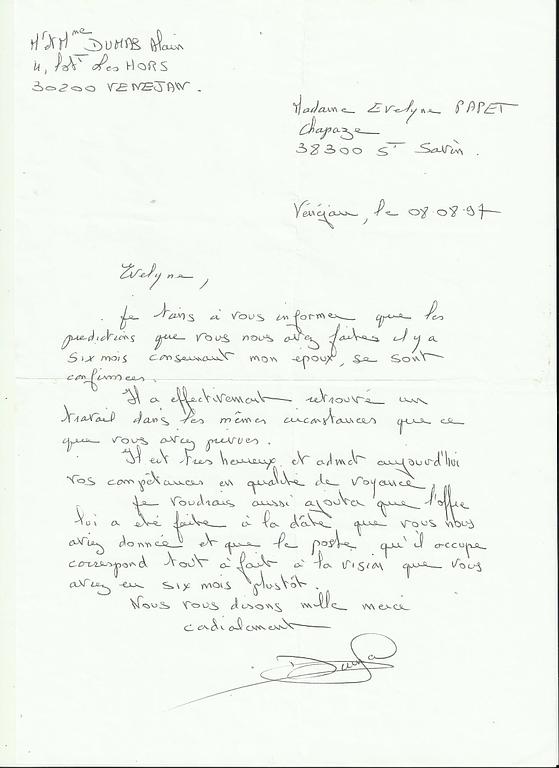 Mr & Mme DUMAS Alain
4, lott Les HORS
30200 VENEJAN.
Madame Evelyne PAPET
Chapaze
38300 ST Savin.
Vénéjan, le 08.08.97
Evelyne,
Je tiens à vous informer que les
predictions que vous nous avez faites il y a
six mois consernant mon époux, se sont
confirmées.
Il a effectivement retrouvé un
travail dans les mêmes circonstances que ce
que vous aviez prévues.
Il est très heureux et admet aujourd'hui
vos compétances en qualité de voyance,
Je voudrais aussi ajouter que l'offre
lui a été faite à la dâte que vous nous
aviez donnée et que le poste qu'il occupe
correspond tout à fait à la vision que vous
aviez eu six mois plustôt.
Nous vous disons mille merci
cordialement